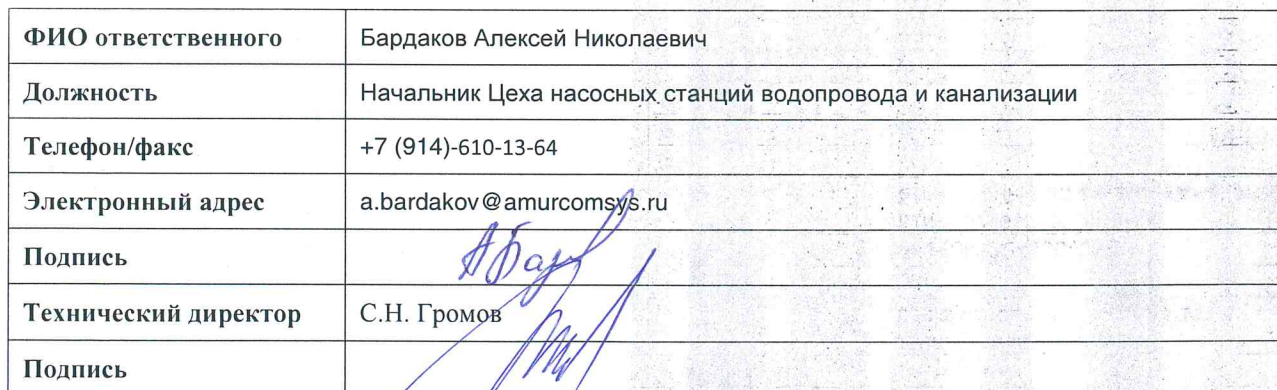 ФИО ответственного Бардаков Алексей Николаевич
Должность Начальник Цеха насосных станций водопровода и канализации
Телефон/факс +7 (914)-610-13-64
Электронный адрес a.bardakov@amurcomsys.ru
Подпись
Технический директор С.Н. Громов
Подпись